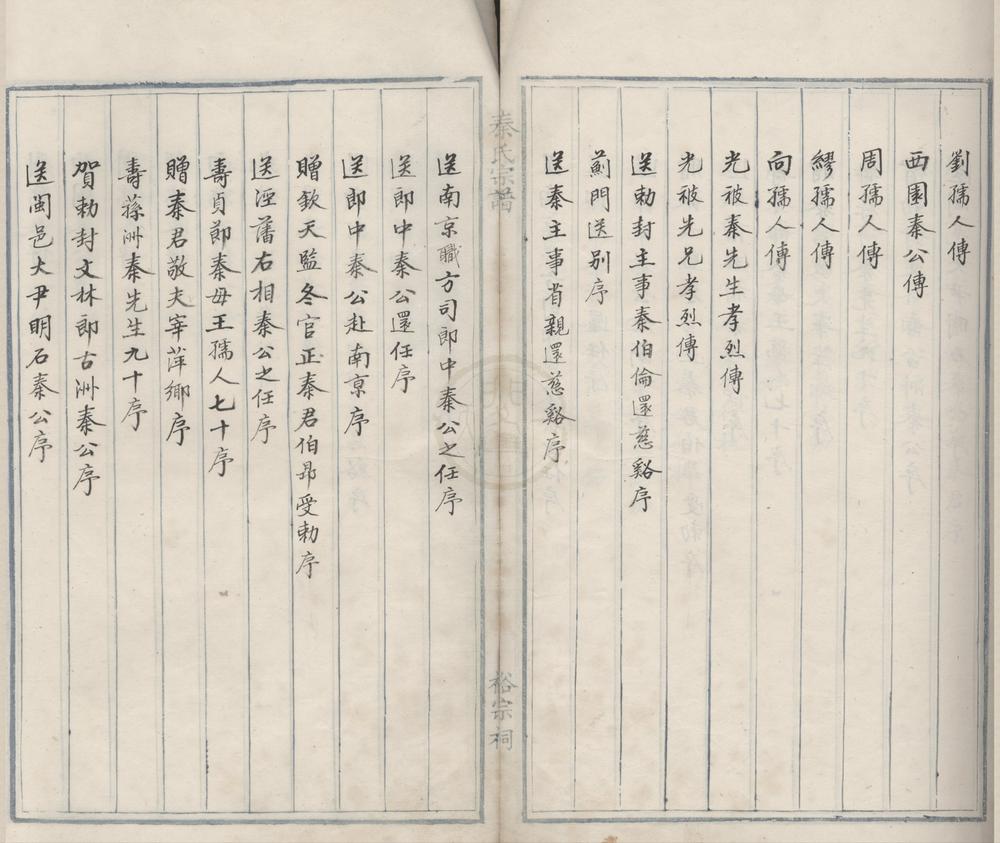 劉孺人傳
西園秦公傳
周孺人傳
繆孺人傳
向孺人傳
光被秦先生孝烈傳
光被先兄孝烈傳
送勅封主事秦伯倫還慈谿序
薊門送别序
送秦主事省親還慈谿序
秦氏宗譜
裕宗祠
送南京職方司郎中秦公之任序
送郎中秦公還任序
送郎中秦公赴南京序
贈欽天監冬官正秦君伯昂受勅序
送涇藩右相秦公之任序
壽貞節秦母王孺人七十序
贈秦君敬夫宰萍鄉序
壽蓀洲秦先生九十序
賀勅封文林郎古洲秦公序
送閩邑大尹明石秦公序